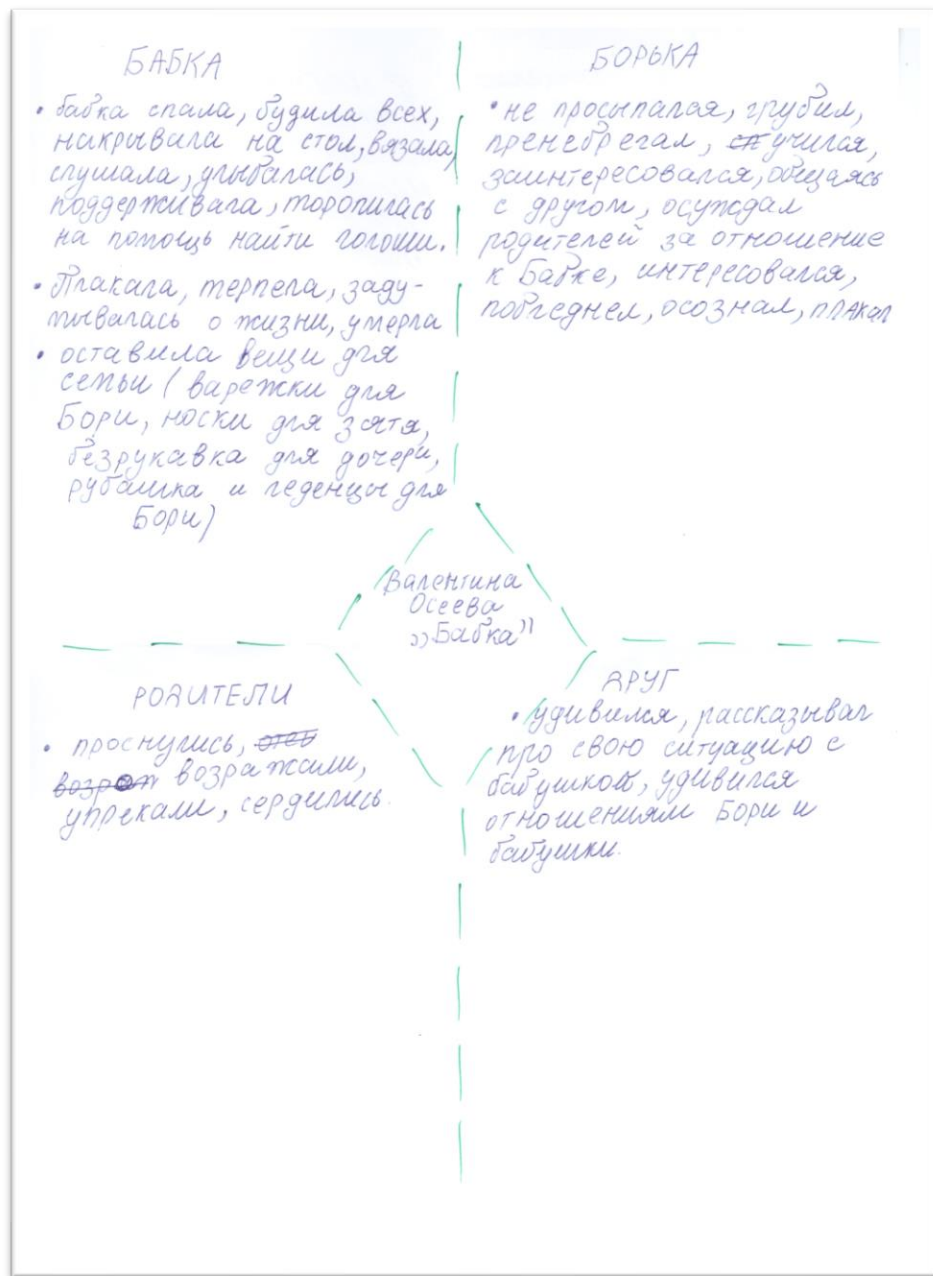 БАБКА
• бабка спала, будила всех,
накрывала на стол, вязала,
слушала, улыбалась,
поддерживала, торопилась
на помощь найти голоши.
• Плакала, терпела, заду-
мывалась о жизни, умерла
• оставила вещи для
семьи (варежки для
Бори, носки для зятя,
безрукавка для дочери,
рубашка и леденцы для
Бори)
БОРЬКА
• не просыпался, грубил,
пренебрегал, учился,
заинтересовался, общаясь
с другом, осуждал
родителей за отношение
к Бабке, интересовался,
побледнел, осознал, плакал
Валентина
Осеева
„Бабка"
РОДИТЕЛИ
• проснулись,
возражали,
упрекали, сердились.
ДРУГ
• удивился, рассказывал
про свою ситуацию с
бабушкой, удивился
отношениям Бори и
бабушки.